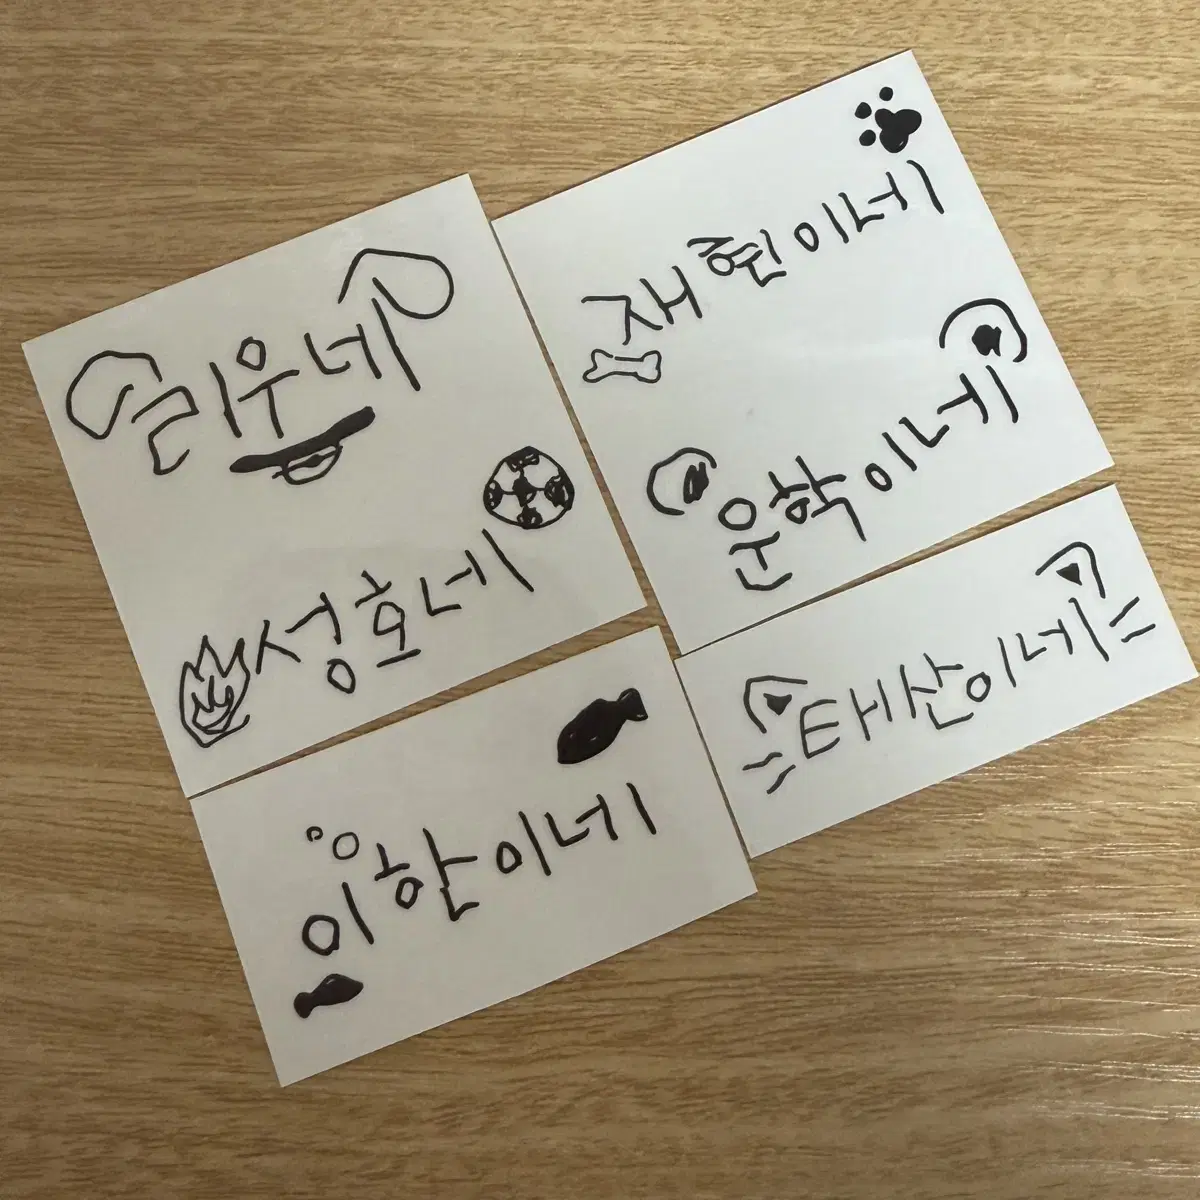 리우네
성호네
재현이네
운학이네
이한이네
태산이네